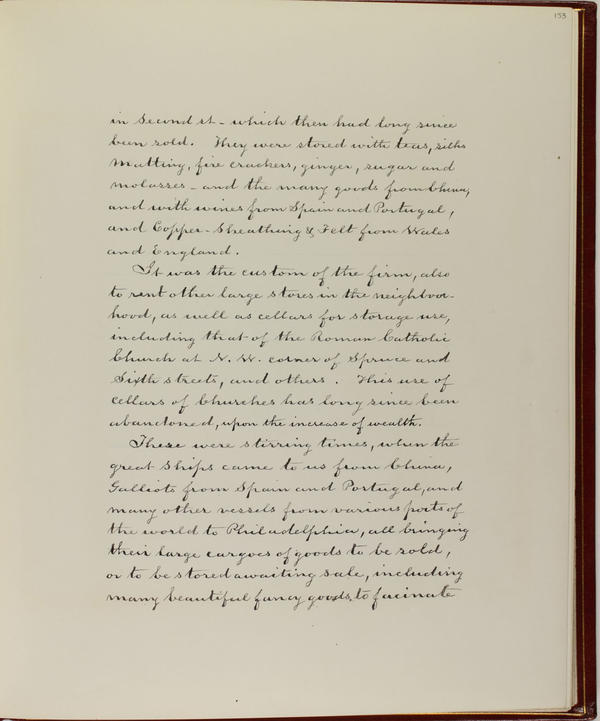 153
in Second st - which then had long since
been sold. They were stored with teas, silks
matting, fire crackers, ginger, sugar and
molasses - and the many goods from China,
and with wines from Spain and Portugal,
and Copper-Sheathing & Felt from Wales
and England.
It was the custom of the firm, also
to rent other large stores in the neighbour-
hood, as well as cellars for storage use,
including that of the Roman Catholic
Church at N. W. corner of Spruce and
Sixth streets, and others. This use of
cellars of Churches has long since been
abandoned, upon the increase of wealth.
These were stirring times, when the
great Ships came to us from China,
Galliots from Spain and Portugal, and
many other vessels from various ports of
the world to Philadelphia, all bringing
their large cargoes of goods to be sold,
or to be stored awaiting sale, including
many beautiful fancy goods, to facinate